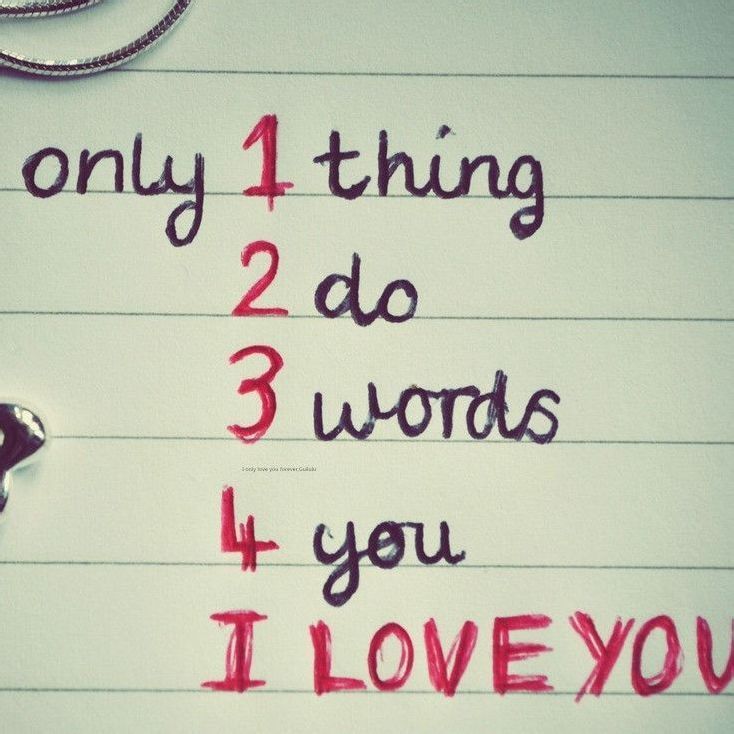 only 1 thing
2 do
3 words
I only love you forever,Guilulu
4 you
I LOVE YOU